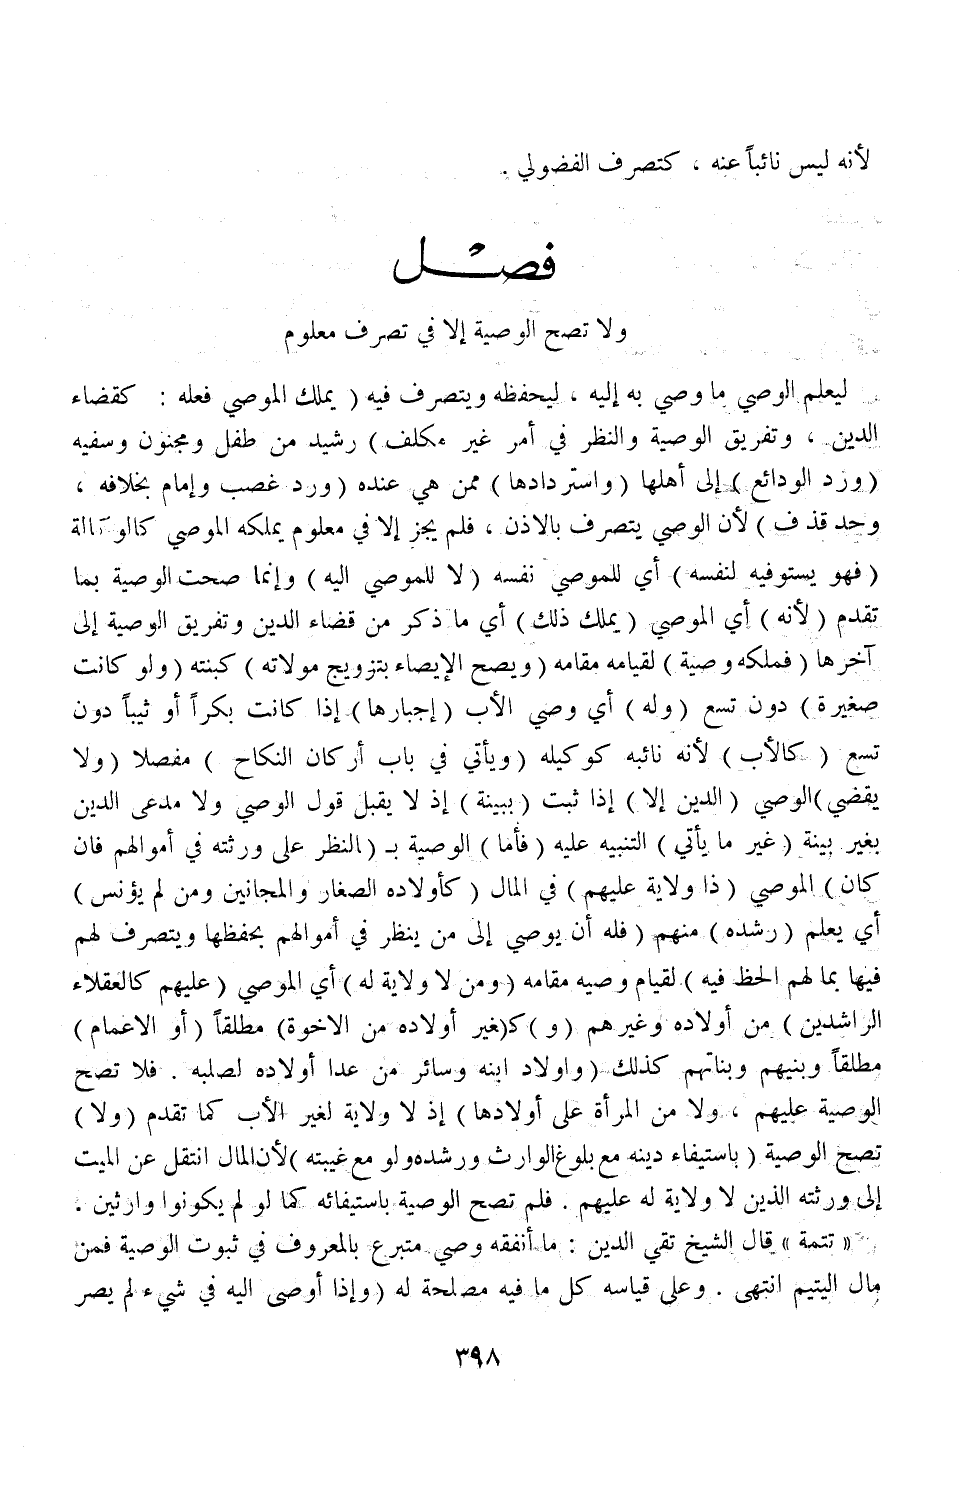 لأنه ليس نائباً عنه ، كتصرف الفضولي .
فصل
ولا تصح الوصية إلا في تصرف معلوم
ليعلم الوصي ما وصي به إليه ، ليحفظه ويتصرف فيه ( يملك الموصي فعله : كقضاء
الدين ، وتفريق الوصية والنظر في أمر غير مكلف ) رشيد من طفل ومجنون وسفيه
( ورد الودائع ) إلى أهلها ( واستردادها ) ممن هي عنده ( ورد غصب وإمام بخلافه ،
وحد قذف ) لأن الوصي يتصرف بالاذن ، فلم يجز إلا في معلوم يملكه الموصي كالوكالة
( فهو يستوفيه لنفسه ) أي للموصي نفسه ( لا للموصي اليه ) وإنما صحت الوصية بما
تقدم ( لأنه ) أي الموصي ( يملك ذلك ) أي ما ذكر من قضاء الدين وتفريق الوصية إلى
آخرها ( فملكه وصية ) لقيامه مقامه ( ويصح الإيصاء بتزويج مولاته ) كبنته ( ولو كانت
صغيرة ) دون تسع ( وله ) أي وصي الأب ( إجبارها ) إذا كانت بكراً أو ثيباً دون
تسع ( كالأب ) لأنه نائبه كوكيله ( ويأتي في باب أركان النكاح ) مفصلا ( ولا
يقضي ) الوصي ( الدين إلا ) إذا ثبت ( ببينة ) إذ لا يقبل قول الوصي ولا مدعى الدين
بغير بينة ( غير ما يأتي ) التنبيه عليه ( فأما ) الوصية بـ ( النظر على ورثته في أموالهم فان
كان ) الموصي ( ذا ولاية عليهم ) في المال ( كأولاده الصغار والمجانين ومن لم يؤنس )
أي يعلم ( رشده ) منهم ( فله أن يوصي إلى من ينظر في أموالهم بحفظها ويتصرف لهم
فيها بما لهم الحظ فيه ) لقيام وصيه مقامه ( ومن لا ولاية له ) أي الموصي ( عليهم كالعقلاء
الراشدين ) من أولاده وغيرهم ( و ) كـ(غير أولاده من الاخوة) مطلقاً ( أو الاعمام )
مطلقاً وبنيهم وبناتهم كذلك ( واولاد ابنه وسائر من عدا أولاده لصلبه . فلا تصح
الوصية عليهم ، ولا من المرأة على أولادها ) إذ لا ولاية لغير الأب كما تقدم ( ولا )
تصح الوصية ( باستيفاء دينه مع بلوغ الوارث ورشده ولو مع غيبته ) لأن المال انتقل عن الميت
إلى ورثته الذين لا ولاية له عليهم . فلم تصح الوصية باستيفائه كما لو لم يكونوا وارثين .
« تتمة » قال الشيخ تقي الدين : ما أنفقه وصي متبرع بالمعروف في ثبوت الوصية فمن
مال اليتيم انتهى . وعلى قياسه كل ما فيه مصلحة له ( وإذا أوصى اليه في شيء لم يصر
٣٩٨